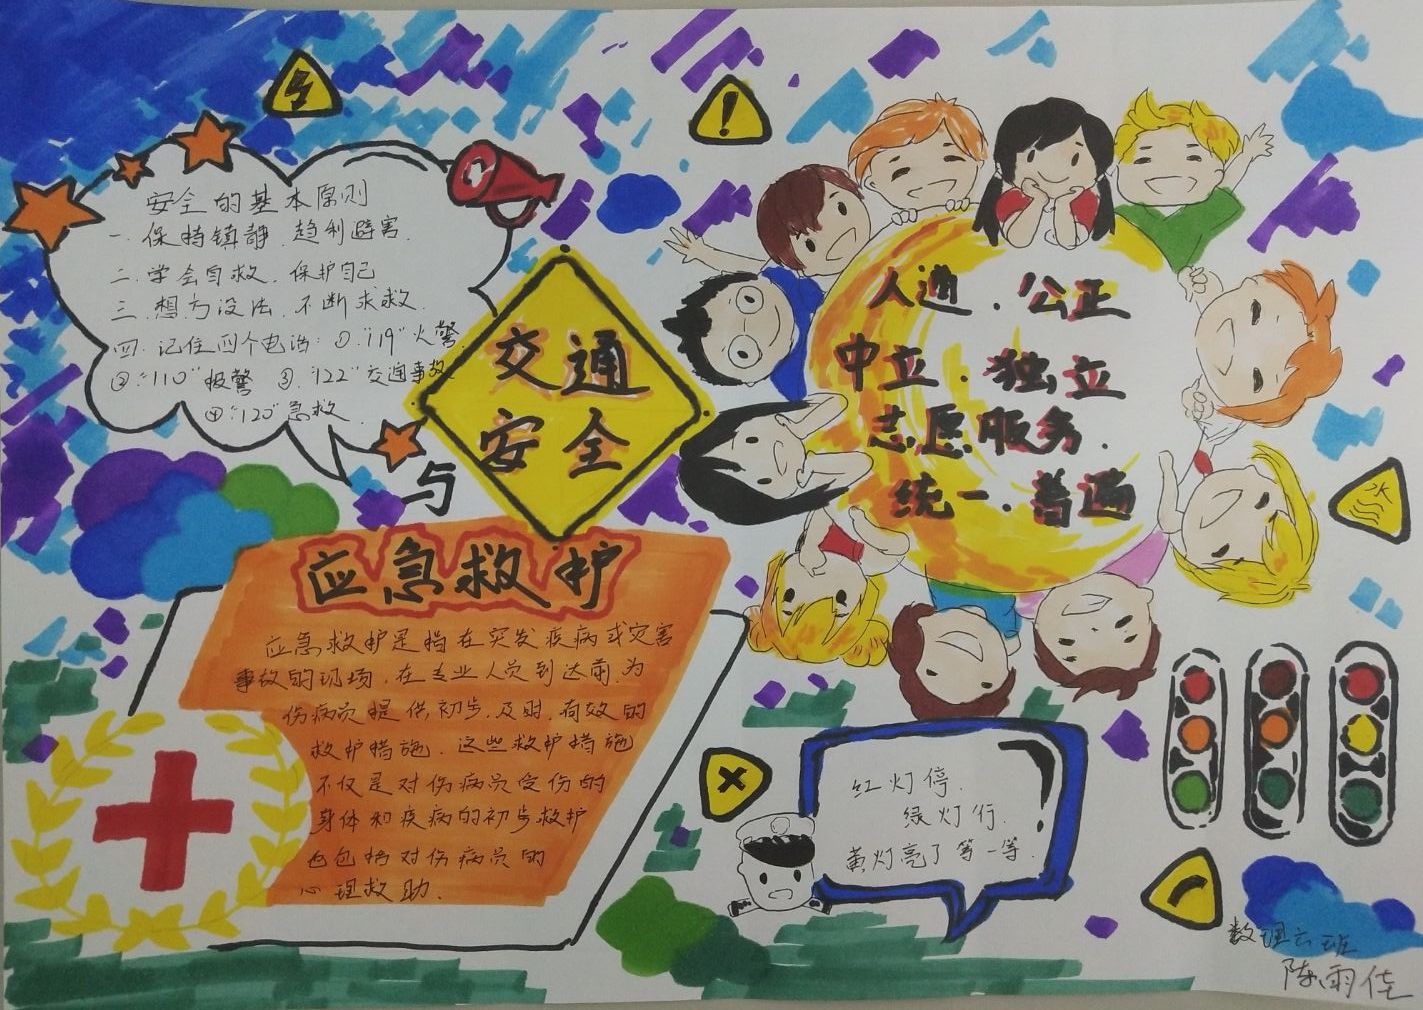 安全的基本原则
一.保持镇静.趋利避害.
二.学会自救.保护自己
三.想方设法.不断求救.
四.记住四个电话:①."119"火警.
②."110"报警 ③."122"交通事故
④."120"急救.
交通
安全
与
应急救护
应急救护是指在突发疾病或灾害
事故的现场.在专业人员到达前.为
伤病员提供初步.及时.有效的
救护措施.这些救护措施
不仅是对伤病员受伤的
身体和疾病的初步救护
也包括对伤病员的
心理救助.
人道.公正
中立.独立
志愿服务.
统一.普遍
红灯停.
绿灯行.
黄灯亮了等一等.
数理六班
陈雨佳